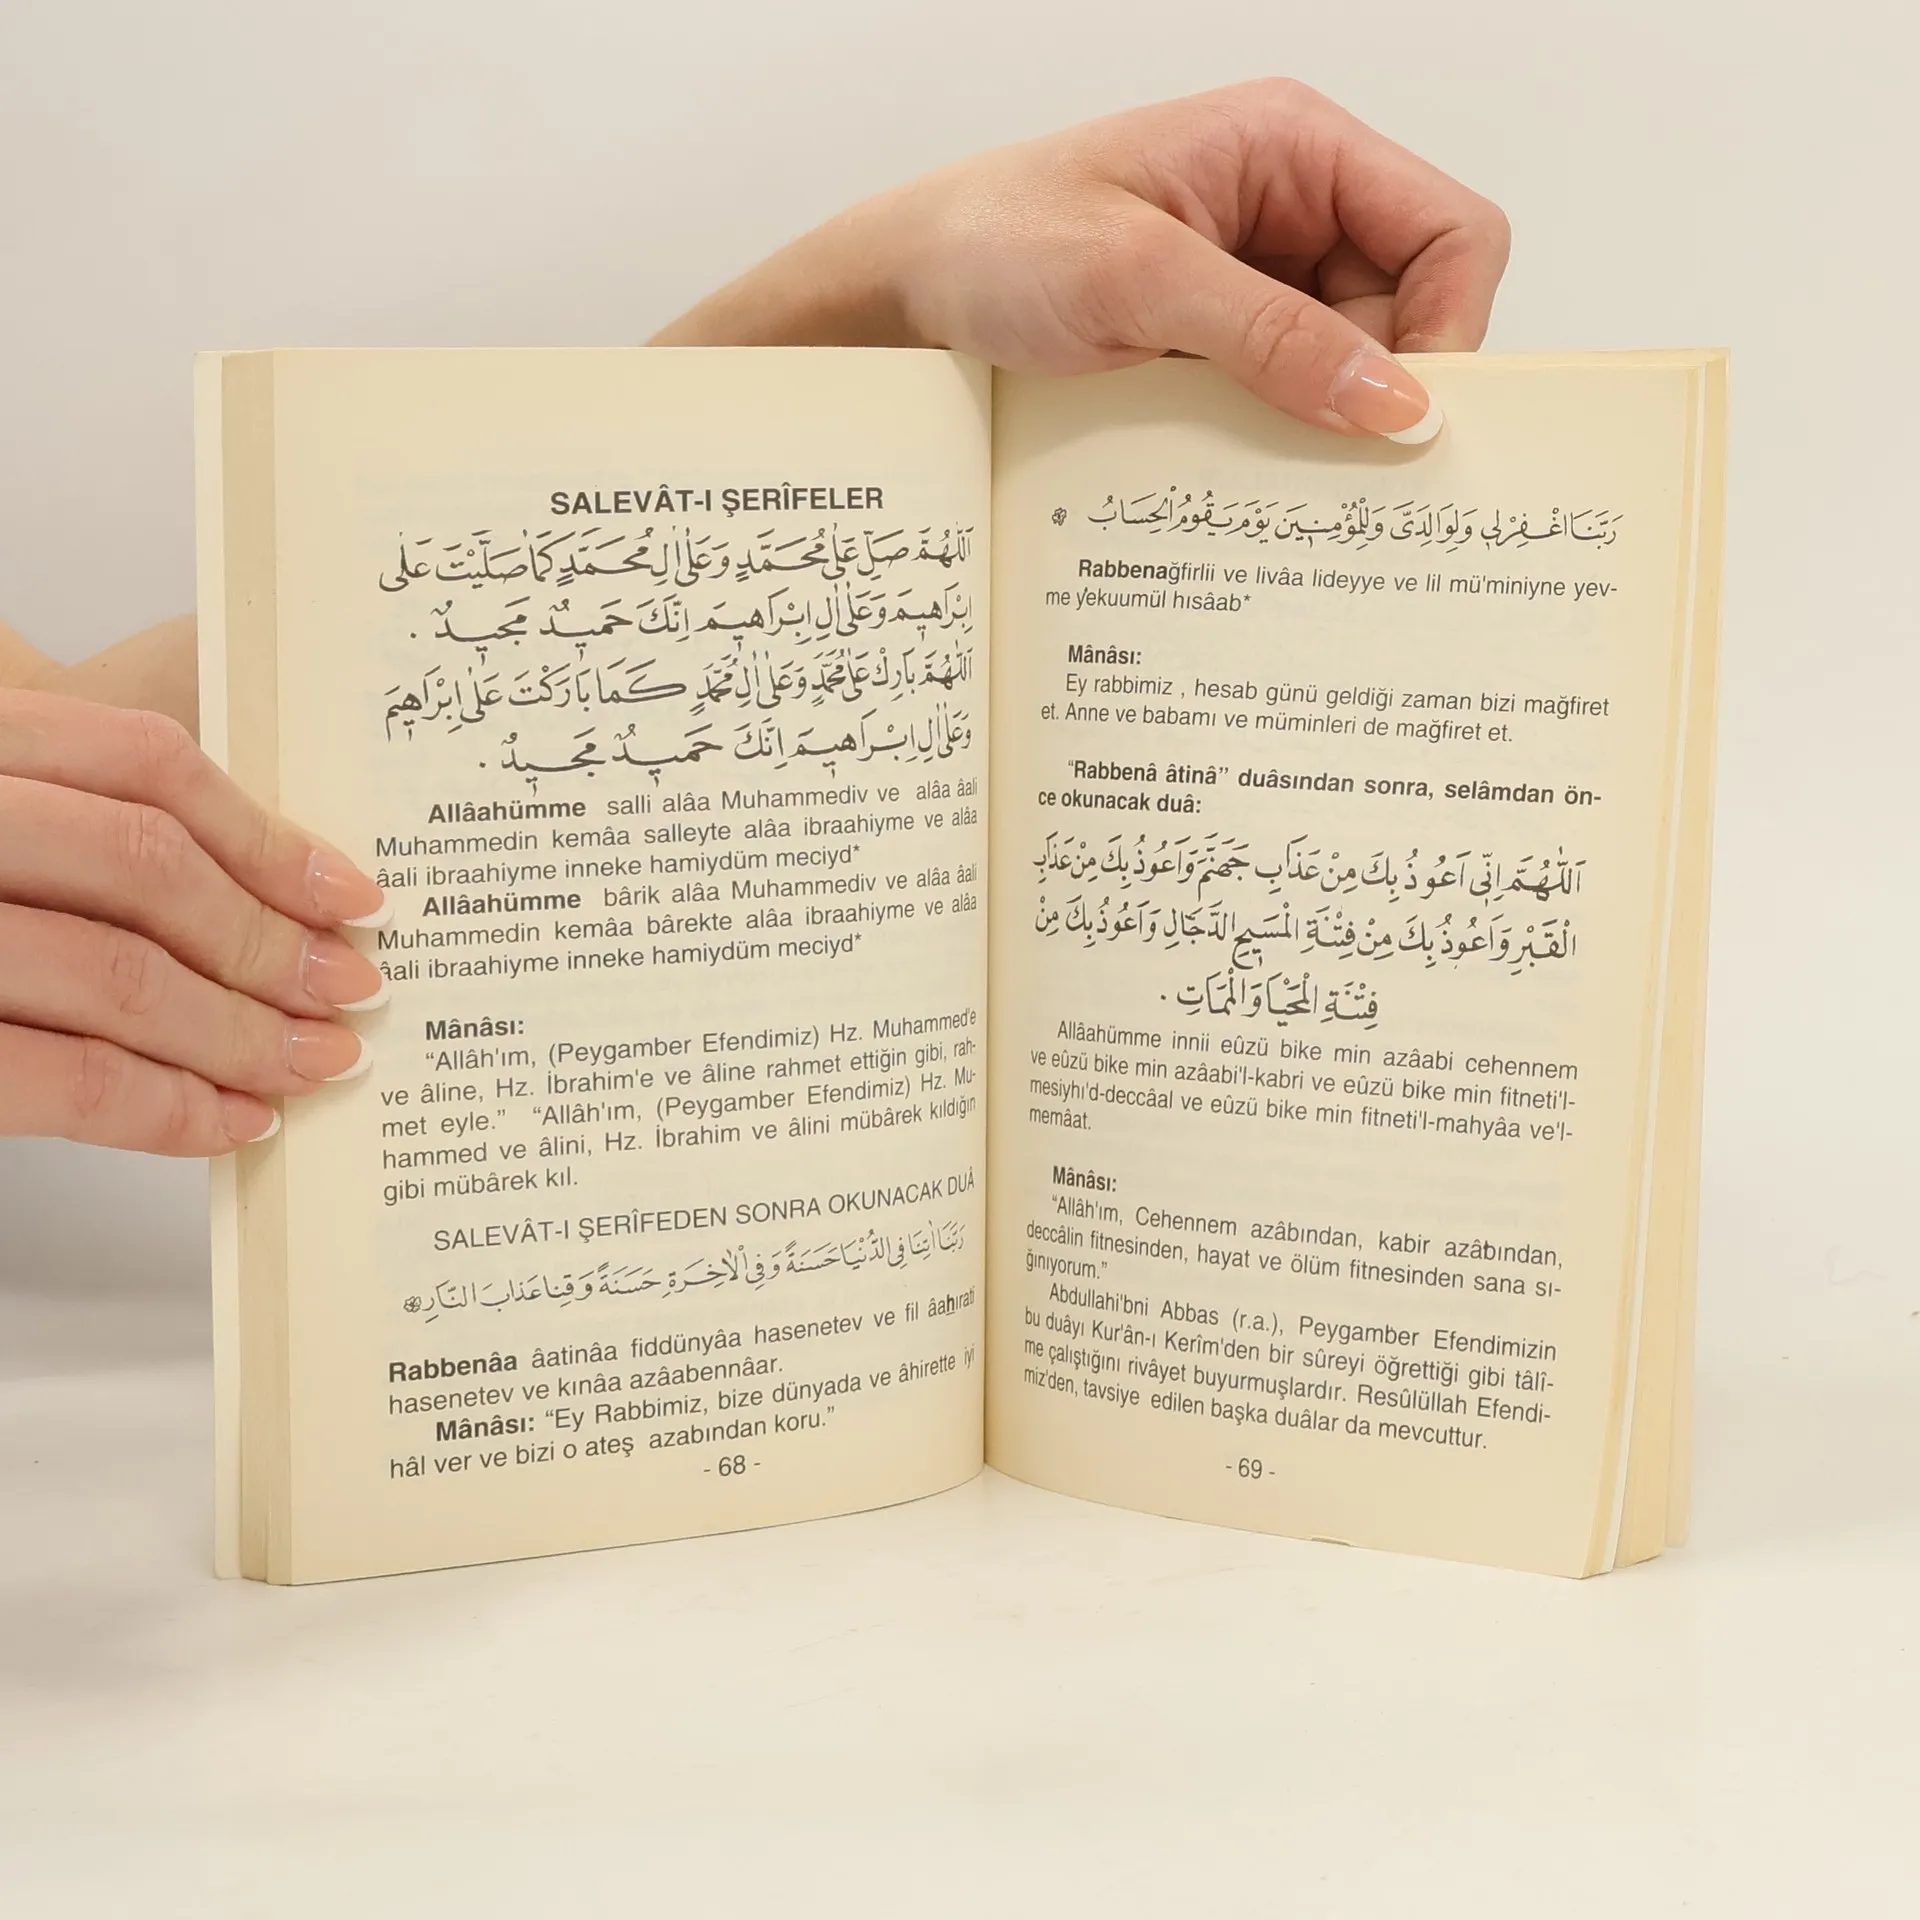 SALEVÂT-I ŞERÎFELER
اَللّٰهُمَّ صَلِّ عَلٰى مُحَمَّدٍ وَعَلٰٓى اٰلِ مُحَمَّدٍ كَمَا صَلَّيْتَ عَلٰٓى
اِبْرَاهِيمَ وَعَلٰٓى اٰلِ اِبْرَاهِيمَ اِنَّكَ حَمِيدٌ مَجِيدٌ .
اَللّٰهُمَّ بَارِكْ عَلٰى مُحَمَّدٍ وَعَلٰٓى اٰلِ مُحَمَّدٍ كَمَا بَارَكْتَ عَلٰٓى اِبْرَاهِيمَ
وَعَلٰٓى اٰلِ اِبْرَاهِيمَ اِنَّكَ حَمِيدٌ مَجِيدٌ .
Allâahümme salli alâa Muhammediv ve alâa âali
Muhammedin kemâa salleyte alâa ibraahiyme ve alâa
âali ibraahiyme inneke hamiydüm meciyd*
Allâahümme bârik alâa Muhammediv ve alâa âali
Muhammedin kemâa bârekte alâa ibraahiyme ve alâa
âali ibraahiyme inneke hamiydüm meciyd*
Mânâsı:
“Allâh'ım, (Peygamber Efendimiz) Hz. Muhammed'e
ve âline, Hz. İbrahim'e ve âline rahmet ettiğin gibi, rah-
met eyle.” “Allâh'ım, (Peygamber Efendimiz) Hz. Mu-
hammed ve âlini, Hz. İbrahim ve âlini mübârek kıldığın
gibi mübârek kıl.
SALEVÂT-I ŞERÎFEDEN SONRA OKUNACAK DUÂ
رَبَّنَا اٰتِنَا فِى الدُّنْيَا حَسَنَةً وَفِى الْاٰخِرَةِ حَسَنَةً وَقِنَا عَذَابَ النَّارِ
Rabbenâa âatinâa fiddünyâa hasenetev ve fil âahırati
hasenetev ve kınâa azâabennâar.
Mânâsı: “Ey Rabbimiz, bize dünyada ve âhirette iyi
hâl ver ve bizi o ateş azabından koru.”
- 68 -
رَبَّنَا اغْفِرْلِى وَلِوَالِدَىَّ وَلِلْمُؤْمِنِينَ يَوْمَ يَقُومُ الْحِسَابُ
Rabbenağfirlii ve livâa lideyye ve lil mü'miniyne yev-
me yekuumül hısâab*
Mânâsı:
Ey rabbimiz , hesab günü geldiği zaman bizi mağfiret
et. Anne ve babamı ve müminleri de mağfiret et.
“Rabbenâ âtinâ” duâsından sonra, selâmdan ön-
ce okunacak duâ:
اَللّٰهُمَّ اِنِّى اَعُوذُ بِكَ مِنْ عَذَابِ جَهَنَّمَ وَاَعُوذُ بِكَ مِنْ عَذَابِ
الْقَبْرِ وَاَعُوذُ بِكَ مِنْ فِتْنَةِ الْمَسِيحِ الدَّجَّالِ وَاَعُوذُ بِكَ مِنْ
فِتْنَةِ الْمَحْيَا وَالْمَمَاتِ .
Allâahümme innii eûzü bike min azâabi cehennem
ve eûzü bike min azâabi'l-kabri ve eûzü bike min fitneti'l-
mesiyhı'd-deccâal ve eûzü bike min fitneti'l-mahyâa ve'l-
memâat.
Mânâsı:
“Allâh'ım, Cehennem azâbından, kabir azâbından,
deccâlin fitnesinden, hayat ve ölüm fitnesinden sana sı-
ğınıyorum.”
Abdullahi'bni Abbas (r.a.), Peygamber Efendimizin
bu duâyı Kur'ân-ı Kerîm'den bir sûreyi öğrettiği gibi tâlî-
me çalıştığını rivâyet buyurmuşlardır. Resûlüllah Efendi-
miz'den, tavsiye edilen başka duâlar da mevcuttur.
- 69 -